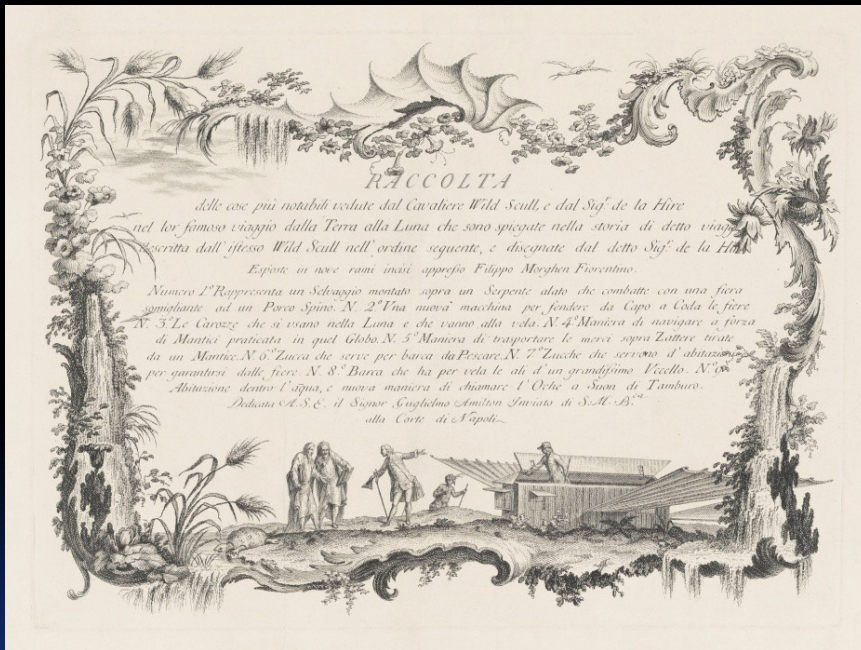 RACCOLTA
delle cose più notabili vedute dal Cavaliere Wild Scull, e dal Sig.r de la Hire
nel lor famoso viaggio dalla Terra alla Luna che sono spiegate nella storia di detto viagg
descritta dall' istesso Wild Scull nell' ordine seguente, e disegnate dal detto Sig.r de la Hi
Esposte in nove rami incisi appresso Filippo Morghen Fiorentino.
Numero 1.º Rappresenta un Selvaggio montato sopra un Serpente alato che combatte con una fiera
somigliante ad un Porco Spino. N. 2.º Vna nuova macchina per fendere da Capo a Coda le fiere
N. 3.º Le Carozze che si vsano nella Luna e che vanno alla vela. N 4.º Maniera di navigare a forza
di Mantici praticata in quel Globo. N. 5.º Maniera di trasportare le merci sopra Zattere tirate
da un Mantice. N. 6.º Zucca che serve per barca da Pescare. N. 7.º Zucche che servono d' abitazion
per garantirsi dalle fiere. N. 8.º Barca che ha per vela le ali d'un grandissimo Vccello. N.º 9.º
Abitazione dentro l'aqua, e nuova maniera di chiamare l'Oche a Suon di Tamburo.
Dedicata A. S. E. il Signor Guglielmo Amilton Inviato di S. M. B.ca
alla Corte di Napoli